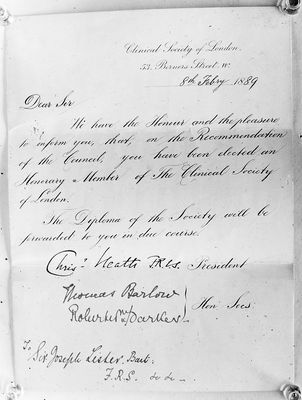 Clinical Society of London.
53, Berners Street. W.
8th Febry 1889
Dear Sir
We have the Honour and the pleasure
to inform you, that, on the Recommendation
of the Council, you have been elected an
Honorary Member of The Clinical Society
of London.
The Diploma of the Society will be
forwarded to you in due course.
Chrisr. Heath F.R.C.S. President
Thomas Barlow
Robert Wm Parker
Hon: Secs:
To Sir Joseph Lister. Bart:
F.R.S. &c &c